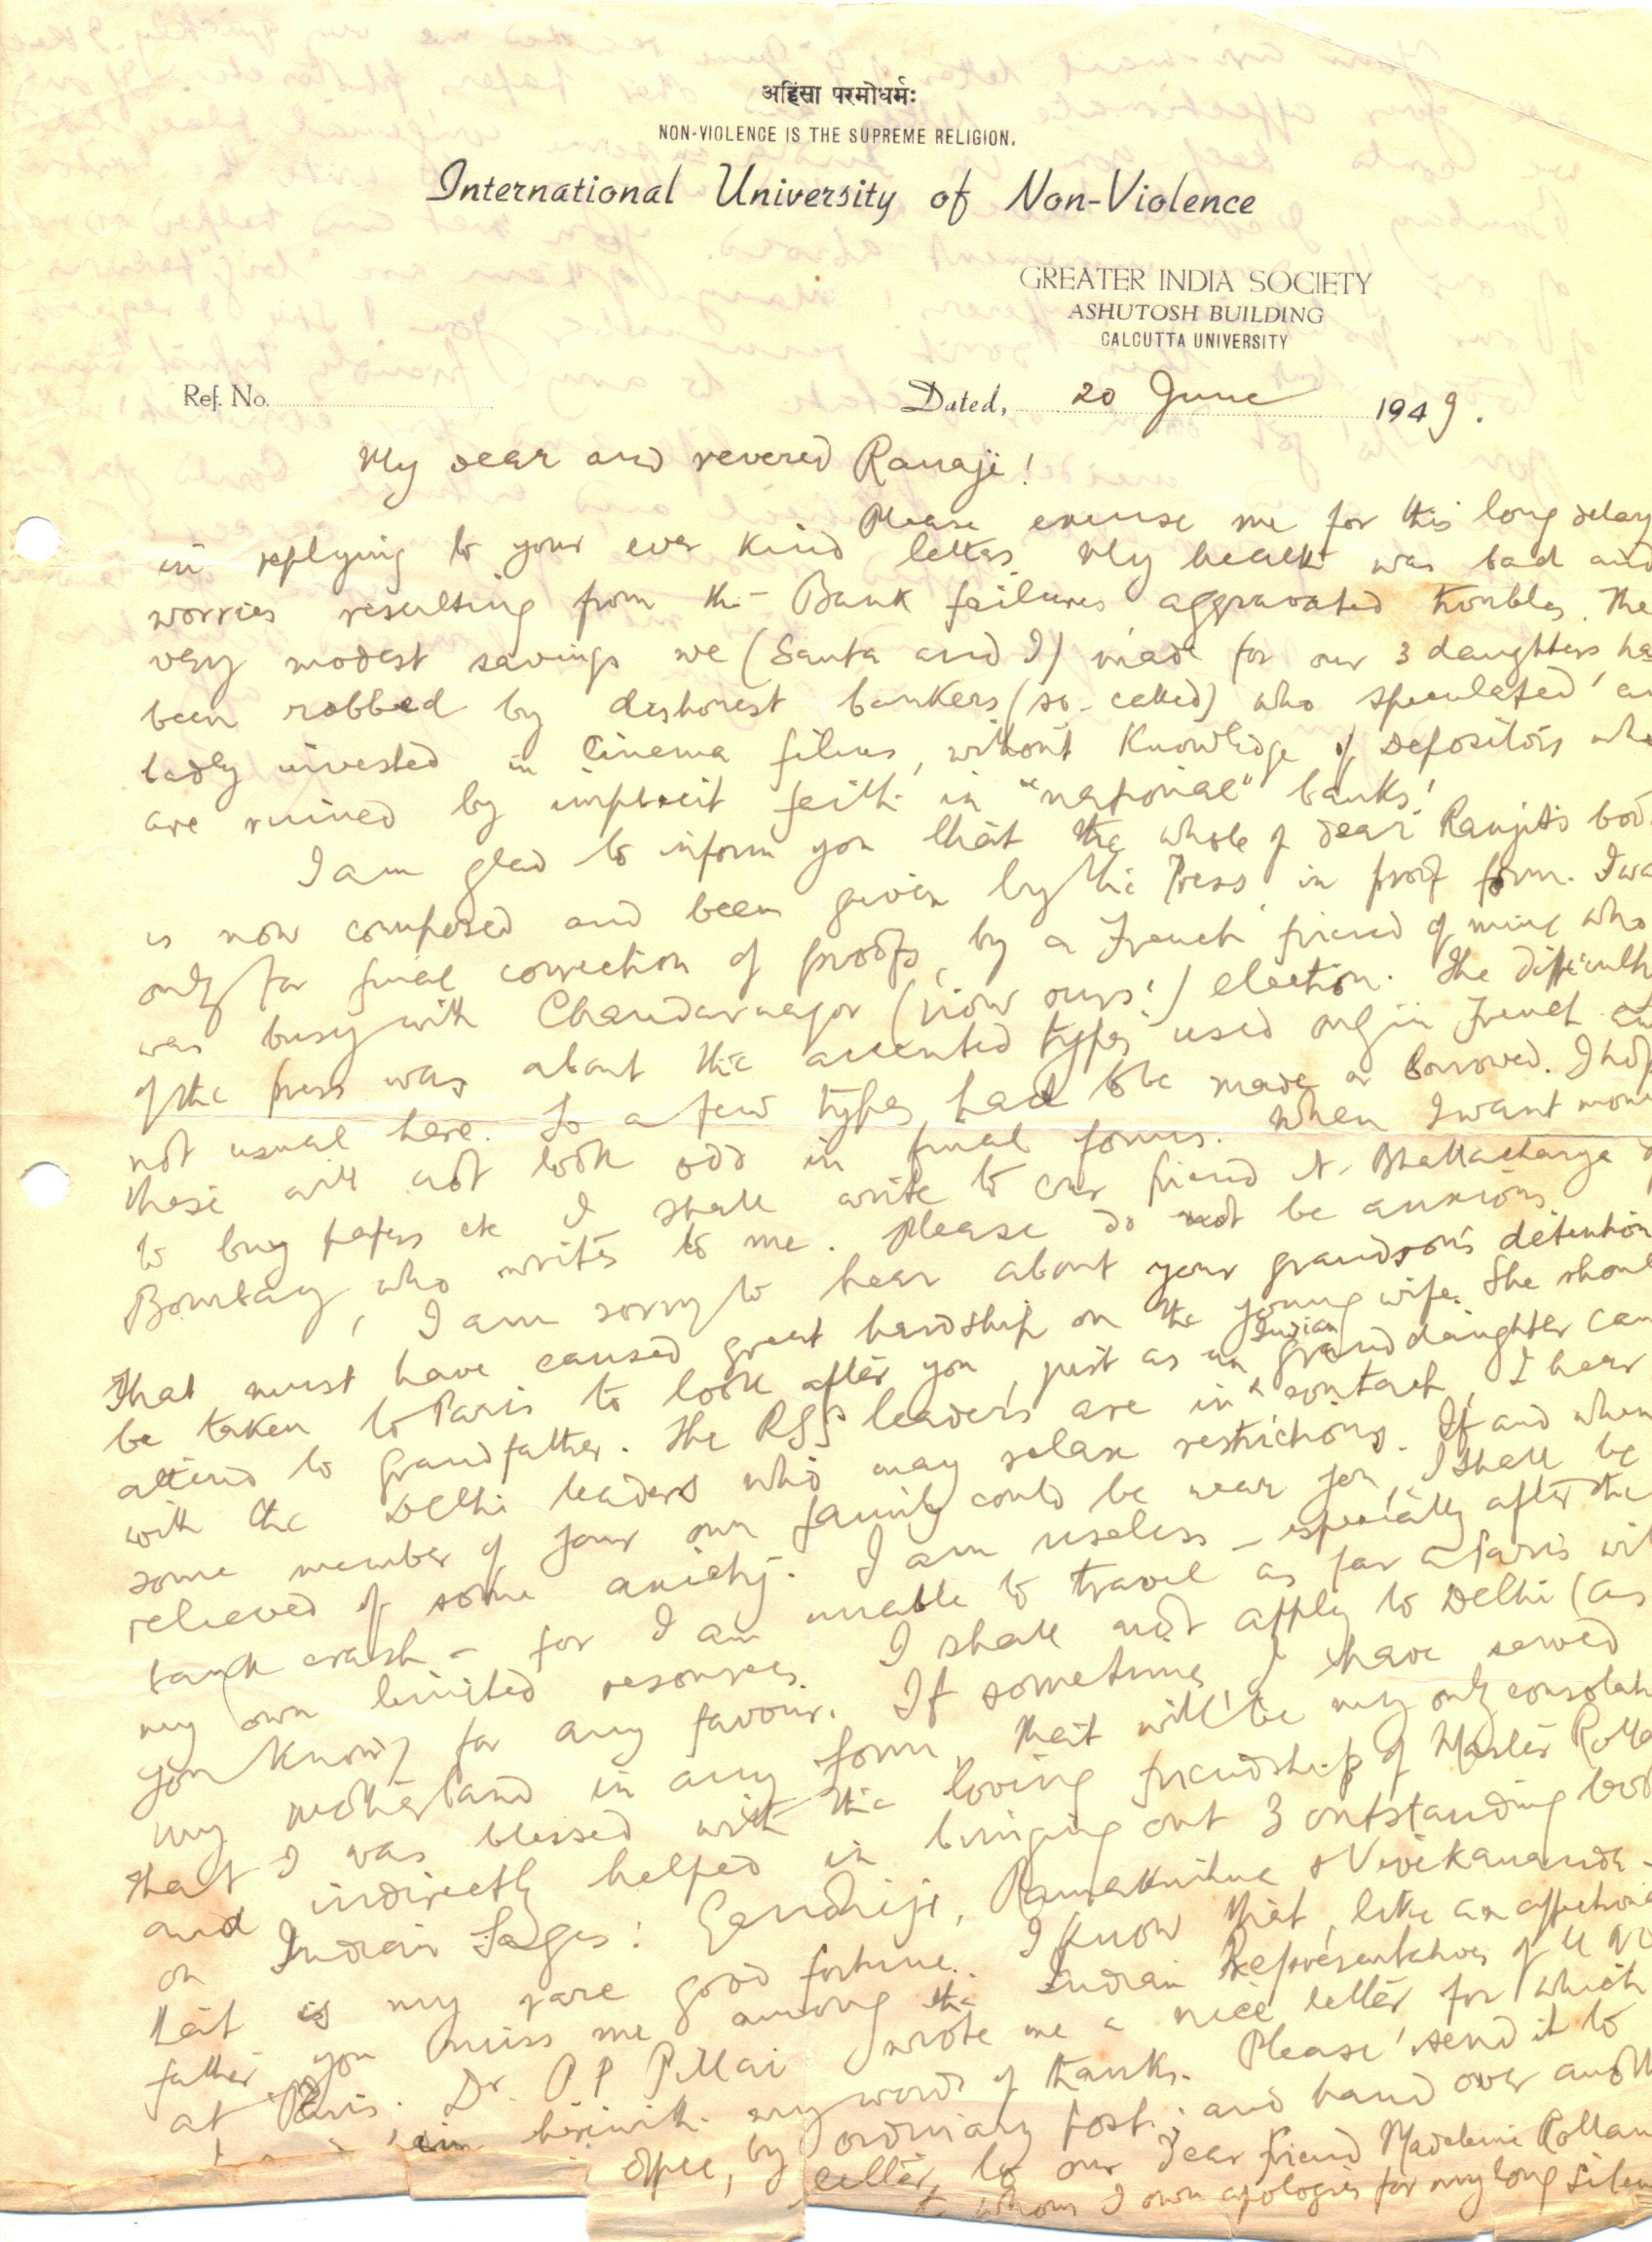 अहिंसा परमोधर्मः
NON-VIOLENCE IS THE SUPREME RELIGION.
International University of Non-Violence
GREATER INDIA SOCIETY
ASHUTOSH BUILDING
CALCUTTA UNIVERSITY
Ref. No.
Dated, 20 June 1949.
My dear and revered Ranaji!
Please excuse me for this long delay
in replying to your ever kind letters. My health was bad and
worries resulting from the Bank failures aggravated troubles. The
very modest savings we (Santa and I) made for our 3 daughters ha
been robbed by dishonest bankers (so-called) who speculated an
badly invested in Cinema films, without knowledge of depositors who
are ruined by implicit faith in "national" banks!
I am glad to inform you that the whole of dear Ranjit's boo
is now composed and been given by the Press in proof form. I wa
only for final correction of proofs, by a French friend of mine who
was busy with Chandarnagor (now ours!) election. The difficulty
of the press was about the accented types used only in French an
not usual here. So a few types had to be made or borrowed. I hop
these will not look odd in final forms. When I want mone
to buy papers etc I shall write to our friend N. Bhattacharya
Bombay, who writes to me. Please do not be anxious.
I am sorry to hear about your grandson's detention
That must have caused great hardship on the young wife. She shoul
be taken to Paris to look after you, just as an Indian grand daughter can
attend to grandfather. The RSS leaders are in contact, I hear
with the Delhi leaders who may relax restrictions. If and when
some member of your own family could be near you, I shall be
relieved of some anxiety. I am useless - especially after the
bank crash - for I am unable to travel as far as Paris wit
my own limited resources. I shall not apply to Delhi (as
you know) for any favour. If sometime I have served
my motherland in any form, that will be my only consolat
that I was blessed with the loving friendship of Master Rolla
and indirectly helped in bringing out 3 outstanding boo
on Indian Sages: Gandhiji, Ramakrishna & Vivekananda -
that is my rare good fortune. I know that, like an affectiona
father, you miss me among the Indian Representatives of U N
at Paris. Dr. P P Pillai wrote me a nice letter for which
herewith my words of thanks. Please send it to
office, by ordinary post; and hand over anoth
letter to our dear friend Madeleine Rollan
to whom I own apologies for my long silen